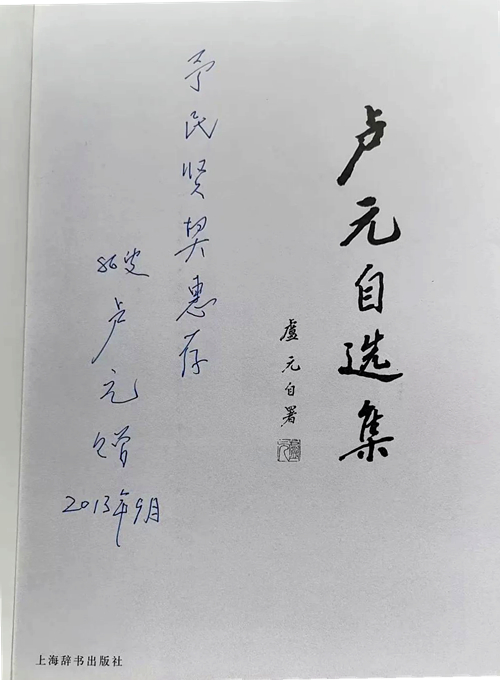 卢元自选集
盧元自署
予民贤契惠存
86叟
卢元
赠
2013年9月
上海辞书出版社